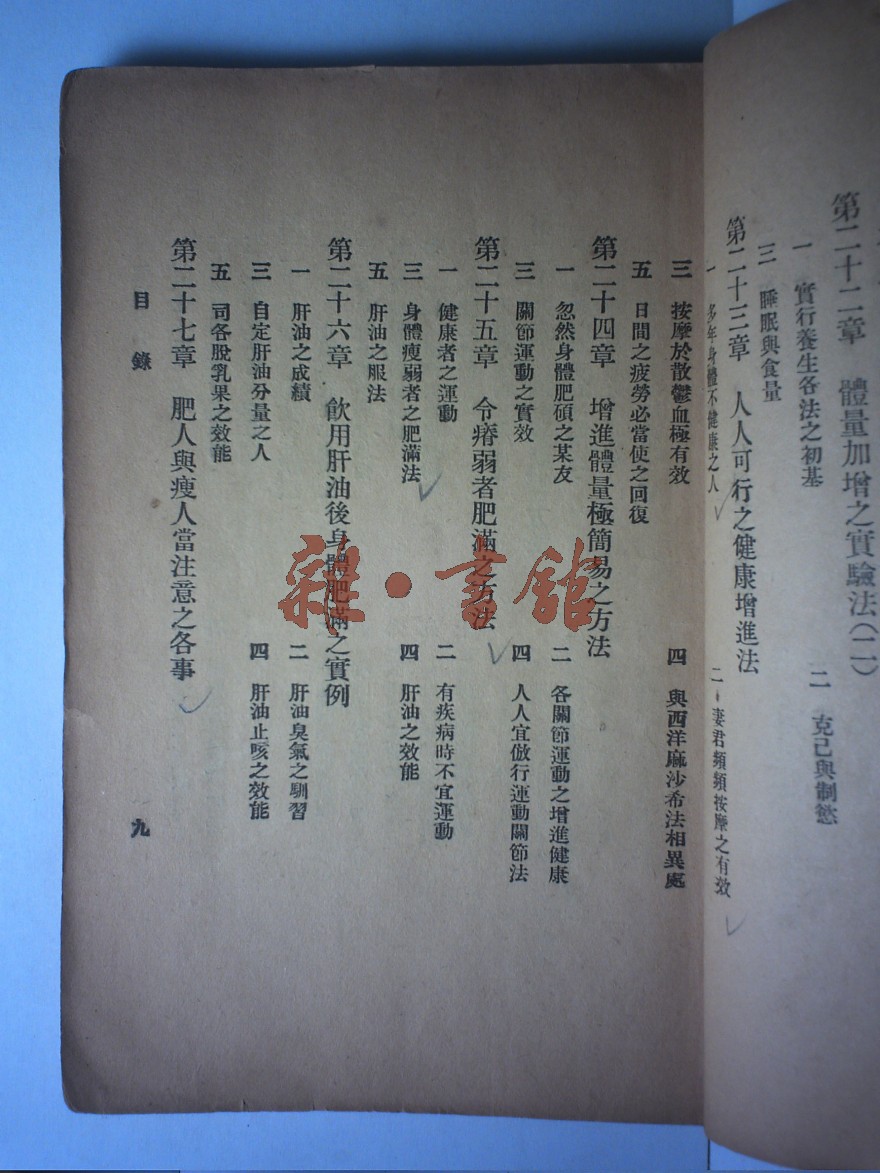 第二十二章　體量加增之實驗法(二)
一　實行養生各法之初基
二　克己與制慾
三　睡眠與食量
第二十三章　人人可行之健康增進法
一　多年身體不健康之人
二　妻君頻頻按摩之有效
三　按摩於散鬱血極有效
四　與西洋麻沙希法相異處
五　日間之疲勞必當使之回復
第二十四章　增進體量極簡易之方法
一　忽然身體肥碩之某友
二　各關節運動之增進健康
三　關節運動之實效
四　人人宜倣行運動關節法
第二十五章　令瘠弱者肥滿之方法
一　健康者之運動
二　有疾病時不宜運動
三　身體瘦弱者之肥滿法
四　肝油之效能
五　肝油之服法
第二十六章　飲用肝油後身體肥滿之實例
一　肝油之成績
二　肝油臭氣之馴習
三　自定肝油分量之人
四　肝油止咳之效能
五　司各脫乳果之效能
第二十七章　肥人與瘦人當注意之各事
目錄
九
雜·書館